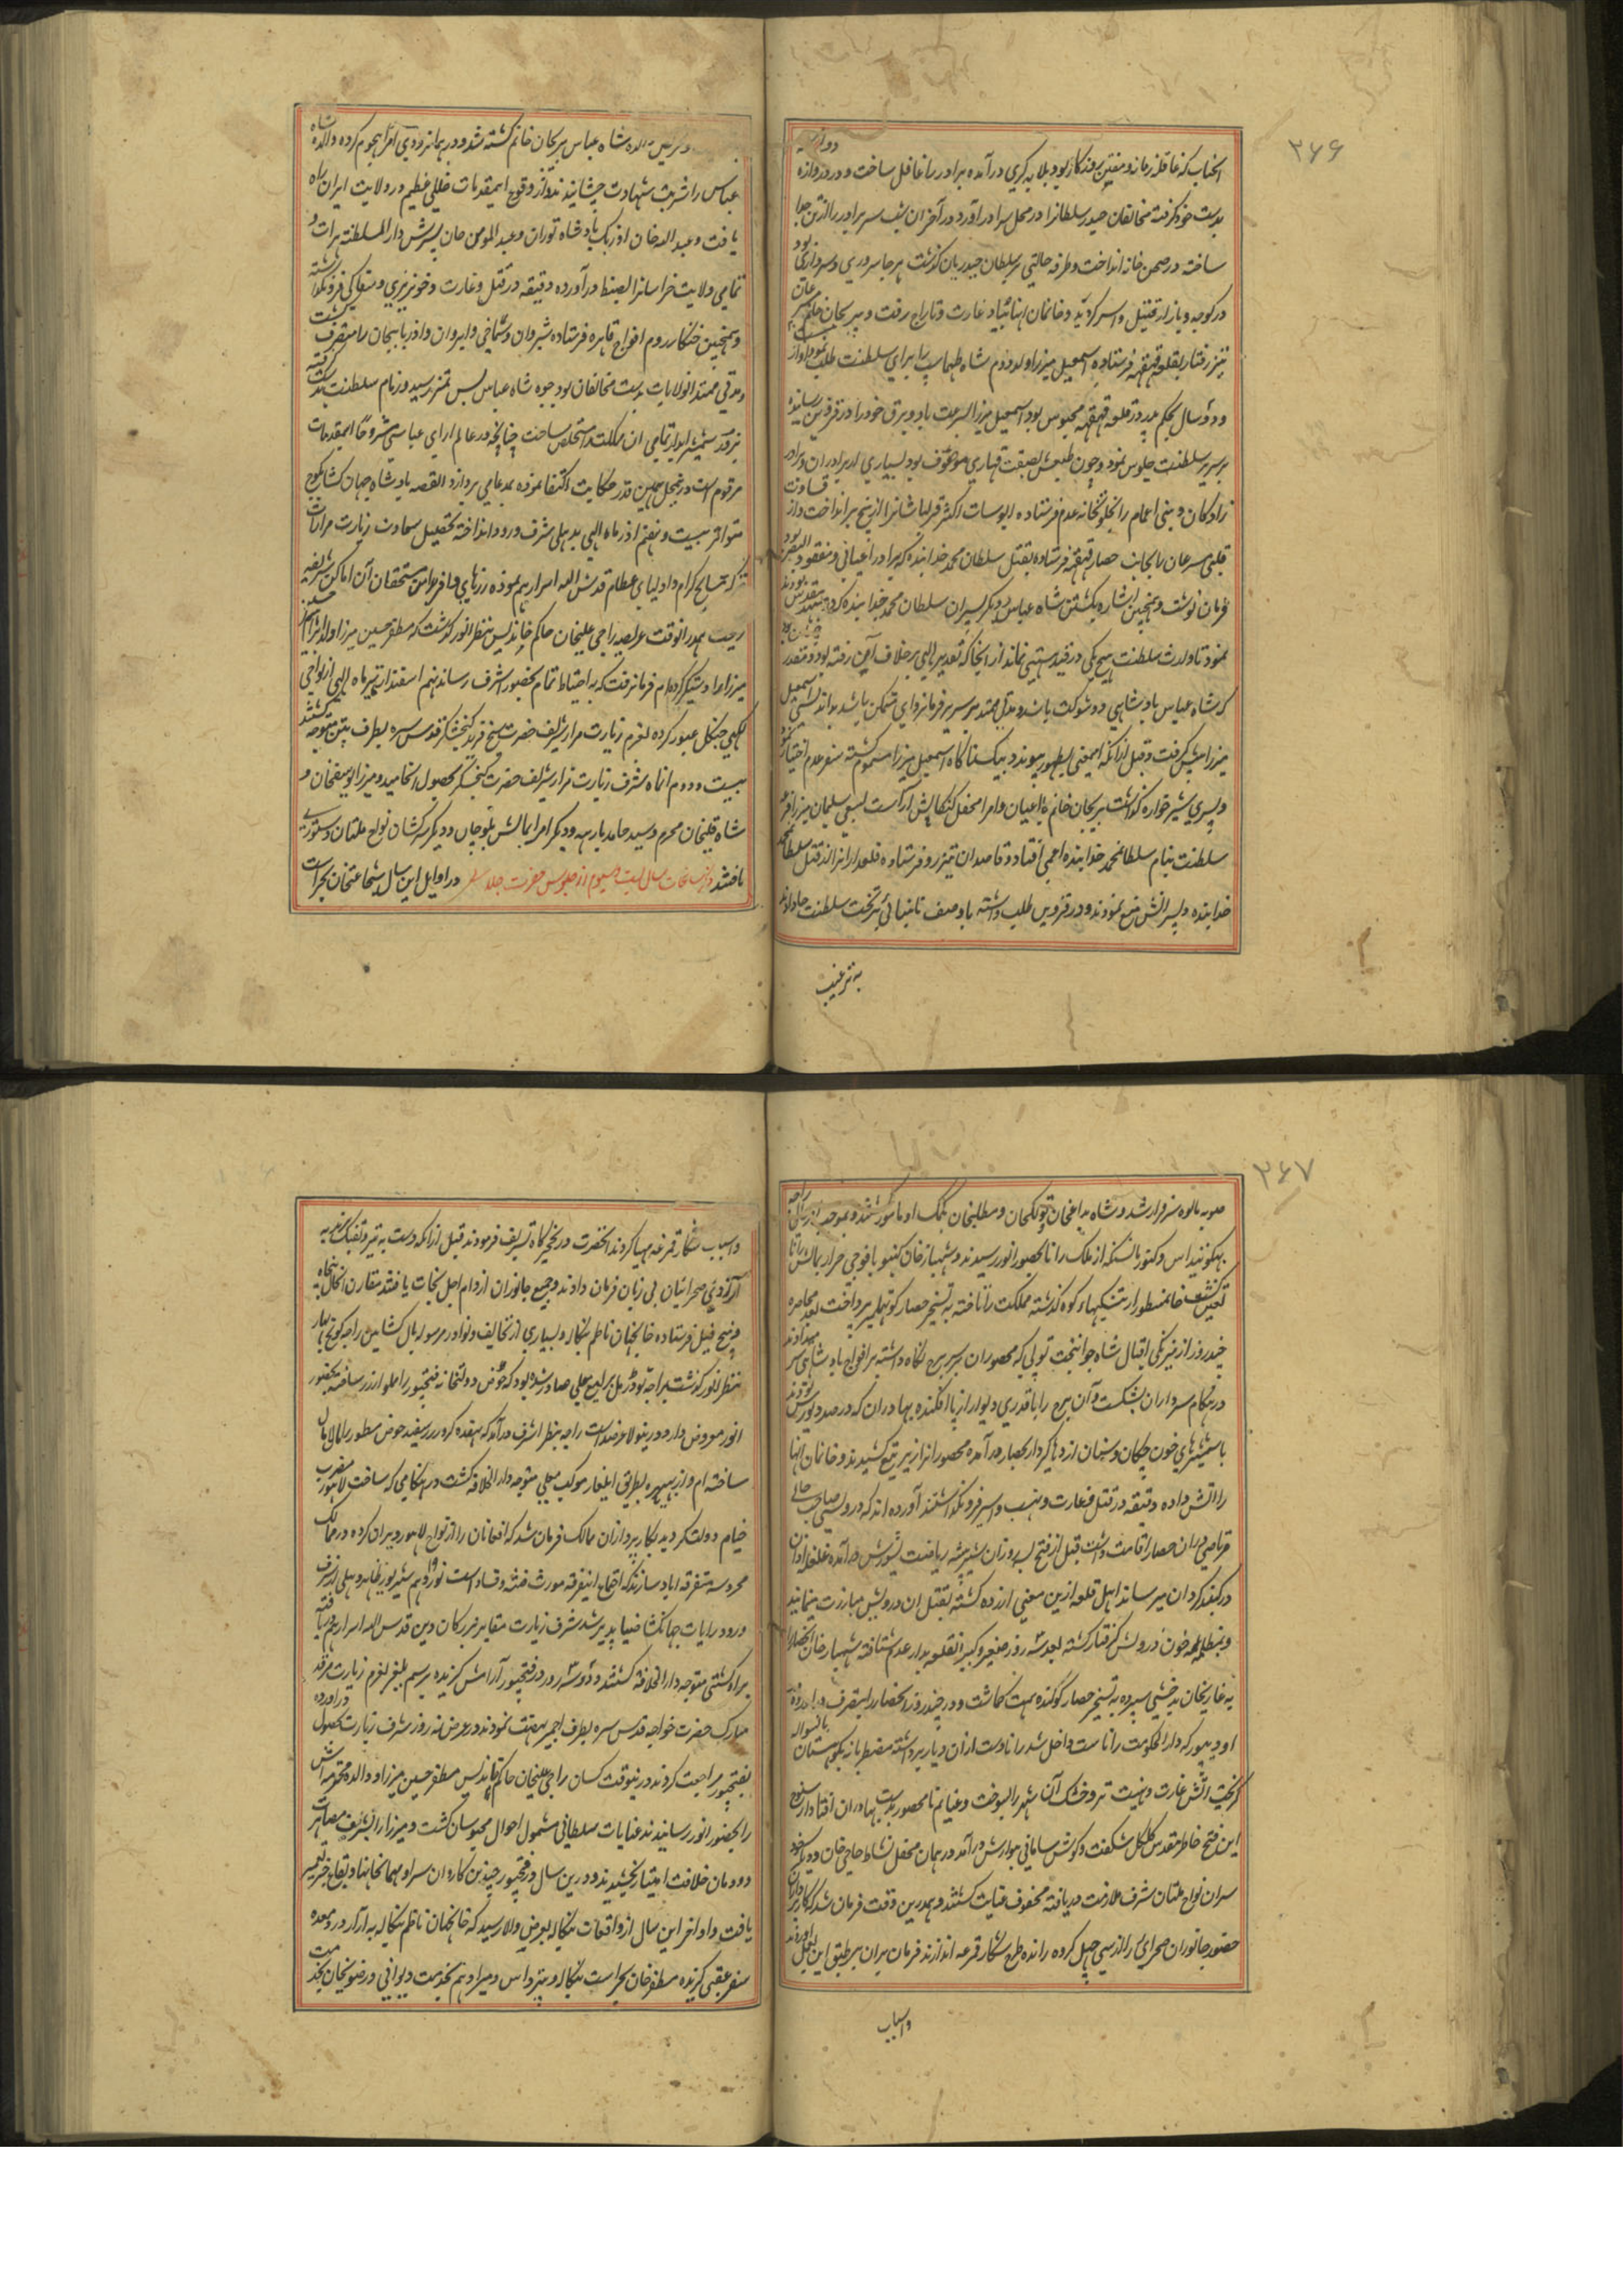 ۲۶۶
انجناب که عاقله زمانه و مفتن روزکار بود بلابه کری درآمده برادر را غافل ساخت و در دروازه
بدست خود کرفت مخالفان حیدر سلطانرا در محل سرا در آورد در آخر آن شب سر برادر را از تن جدا
ساخته در صحن خانه انداخت و طرفه حالتی بر سلطان حیدریان کذشت هر جا سروری و سرداری بود
در کوچه و بازار قتیل و اسیر کردید و خانمان انها بباد غارت و تاراج رفت و پریجان خانم
تیز رفتار بقلعه قهقهه فرستاده اسمعیل میرزا ولد دوم شاه طهماسپ را برای سلطنت طلب نمود
و دو سال بحکم پدر در قلعه قهقهه محبوس بود اسمعیل میرزا بسرعت باد و برق خود را در قزوین رسانیده
بر سریر سلطنت جلوس نمود و چون طبعش بصفت قهاری موصوف بود بسیاری از برادران و برادر
زادکان و بنی اعمام را بخلوتخانه عدم فرستاده اکثر قزلباشانرا از بیخ برانداخت و از قساوت
قلبی سرعان بجانب فرستاده بقتل سلطان محمد خدابنده که برادر اعیانی و مفقود البصر بود
فرمان نوشت و همچنین اشاره بکشتن شاه عباس و دیکر پسران سلطان محمد خدابنده کرد
نمود تا وارث سلطنت هیچ یکی در قید هستی نماند از انجا که تقدیر الهی بر خلاف آن رفته بود و مقدر
که شاه عباس بادشاهی ذو شوکت باشد و مدتی ممتد بر سریر فرمانروایی متمکن باشد
میرزا پیش کرفت و قبل از انکه این معنی بظهور پیوندد بیکناکاه اسمعیل میرزا مسموم کشته سفر عدم اختیار نمود
و پسری شیرخواره کذاشت پریجان خانم با اعیان و امرا محفل کنکاش آراست بسعی سلیمان میرزا قرعه
سلطنت بنام سلطان محمد خدابنده اعمی افتاد و قاصدان تیزرو فرستاده قلعه داران را از قتل سلطان محمد
خدابنده و پسرانش منع نمودند و در قزوین طلب داشته با وصف نابینائی بر تخت سلطنت جا دادند
به ترغیب
والده شاه عباس پریجان خانم کشته شد و در همانزودی امرا هجوم کرده والده شاه
عباس را شربت شهادت چشانیدند و از وقوع این مقدمات خللی عظیم در ولایت ایران راه
یافت و عبدالله خان اوزبک بادشاه توران و عبدالمومن خان پسرش دارالسلطنه هرات و
تمامی ولایت خراسانرا بضبط درآورده دقیقه در قتل و غارت و خونریزی و سفاکی فرو نکذاشته
و همچنین خنکار روم افواج قاهره فرستاده شیروان و شماخی و ایروان و اذربایجان را متصرف کشت
و مدتی ممتد آنولایات بدست مخالفان بود چون شاه عباس بسن تمیز رسید و زمام سلطنت بدست کرفت
بزور شمشیر ابدار تمامی ان مملکت را مستخلص ساخت چنانچه در عالم ارای عباسی مشروحا اینمقدمات
مرقوم است و درین محل بهمین قدر حکایت اکتفا نموده بمدعای میپردازد القصه بادشاه جهان کشا بکوچ
متواتر بیست و نهم اذر ماه الهی بدهلی شرف ورود انداخته تحصیل سعادت زیارت مزارات
متبرکه مشایخ کرام و اولیای عظام قدس الله اسرارهم نموده زرهای وافر بدامن مستحقان آن اماکن شریفه
ریخت همدر انوقت عرایض راجی علیخان حاکم خاندیس بنظر انور کذشت که مظفر حسین میرزا ولد ابراهیم حسین
میرزا را دستکیر کرده ام فرمان رفت که به احتیاط تمام بحضور اشرف رساند نهم اسفندار ماه الهی از نواحی
لکهی جنکل عبور کرده بعزم زیارت مزار شریف حضرت شیخ فرید کنجشکر قدس سره بطرف پتن متوجه کشتند
بیست و دوم انماه شرف زیارت مزار شریف حضرت کنجشکر بحصول انجامید و میرزا یوسفخان و
شاه قلیخان محرم و سید حامد بارهه و دیکر امرا بمالش بلوچان و دیکر سرکشان نواح ملتان دستوری
یافتند وقایع سال بیست و سیوم از جلوس حضرت در اوایل این سال شجاعتخان بحراست
۲۶۷
صوبه مالوه سرفراز شد و شاه بداغخان و تولکخان و مطلبخان بکمک او مامور کشتند و بموجب راجه
بهکونتداس و کنور مانسنکه از ملک رانا بحضور انور رسیدند و شهباز خان کنبو با فوجی جرار بمالش رانا
تعین کشت خان مسطور از تنکیهای کوه کذشته مملکت رانا تافته به تسخیر حصار کونبهلمیر پرداخت بعد محاصره
چند روز از نیرنکی اقبال شاه جوانبخت توپی که محصوران بر سر برج نکاه داشته بر افواج بادشاهی سر میدادند
در هنکام سر دادن بشکست و آن برج را با قدری دیوار از پا افکنده بهادران که در صدد یورش بودند
با شمشیرهای خون چکان و سنان اژدها کردار بحصار درآمده محصورانرا زیر تیغ کشیدند و خانمان انها
را اتش داده دقیقه در قتل و غارت و نهب و اسیر فرو نکذاشتند آورده اند که درویشی صاحب حالی
مرتاضی دران حصار اقامت داشت قبل از فتح
درکنکر کردان میرساند اهل قلعه ازین معنی ازرده کشته بقتل ان درویش مبادرت مینمایند
و بمظلمه خون درویش کرفتار کشته بعد سه روز صغیر و کبیر انقلعه بدار عدم شتافته شهباز خان انحصار را
به غازیخان بدخشی سپرده به تسخیر حصار کوکنده همت کماشت و در چند روز انحصار را بتصرف دراورده
اودیپور که دارالحکومت راناست داخل شد رانا دست ازان دیار برداشته مضطربانه بکوهستان بانسواله
کریخت آتش غارت و نهیب تر و خشک آن شهر را بسوخت و غنایم نامحصور بدست بهادران افتاد از سنوح
این فتح خاطر مقدس کل کل شکفت و در همان محفل نشاط حاجی خان و دیکر
سران نواح ملتان شرف ملازمت دریافته محفوف عنایت کشتند و همدرین وقت فرمان شد که کارپردازان
حضور جانوران صحرائی را از سی چهل کروه رانده طرح شکار قمرغه اندازند فرمان بران بر طبق این عمل اورده
واسباب
و اسباب شکار قمرغه مهیا کردند انحضرت در نخجیرکاه تشریف فرمودند قبل از انکه دست به تیر و تفنک برند به
آزادی صحرائیان بی زبان فرمان دادند و جمیع جانوران از دام اجل نجات یافتند مقارن انحال پنجاه
و پنج فیل فرستاده خانجهان ناظم بنکاله و بسیاری از تحایف و نوادر مرسوله مال کشاین راجه کوچ بهار
بنظر انور کذشت براجه تودرمل یرلیغ معلی صادر شده بود که حوض دولتخانه فتحپور را مملو از زر ساخته بحضور
انور معروض دارد و درینولا عرضداشت راجه بنظر اشرف درآمد که هفده کرور زر سفید حوض مسطور را مالامال
ساخته ام و از بهیره بطریق ایلغار موکب معلی متوجه دارالخلافه کشت در هنکامی که ساحت لاهور مضرب
خیام دولت کردید بکارپردازان ممالک فرمان شد که افغانان را از نواح لاهور ویران کرده در ممالک
محروسه متفرقه اباد سازند که اجتماع اینفرقه مورث فتنه و فساد است
ورود رایات جهانکشا ضیا پذیر شد شرف زیارت مقابر بزرکان دین قدس الله اسرارهم یافته
براه کشتی متوجه دارالخلافه کشتند و دو سه روز در فتحپور آرامش کزیده برسم یلغار بعزم زیارت مرقد
مبارک حضرت خواجه قدس سره بطرف اجمیر نهضت نمودند و در عرض نه روز شرف زیارت بحصول دراورده
بفتحپور مراجعت کردند درینوقت کسان راجی علیخان حاکم خاندیس مظفر حسین میرزا و والده محترمه اش
را بحضور انور رسانیدند عنایات سلطانی مشمول احوال محبوسان کشت و میرزا را بشرف مصاهرت
دودمان خلافت امتیاز بخشیدند و درین سال در فتحپور چندین کاروان سرا و مهمانخانها و بقاع خیر تعمیر
یافت و اواخر این سال از واقعات بنکاله بعرض والا رسید که خانجهان ناظم بنکاله به آزار درد معده
سفر عقبی کزیده مظفر خان بحراست بنکاله و پترداس و میر ادهم بخدمت دیوانی و رضویخان بخدمت